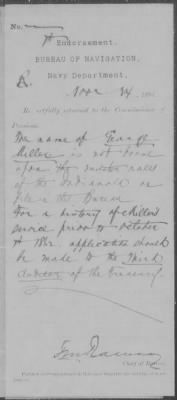 No.
Endorsement.
BUREAU OF NAVIGATION,
Navy Department,
Nov 24, 189
Respectfully returned to the Commissioner of
Pensions.
The name of George
Miller is not found
upon the muster rolls
of the Indianola on
file in the Bureau
For a history of Miller's
service prior to October
1st 1862 application should
be made to the Third
Auditor of the Treasury.
Chief of Bureau.